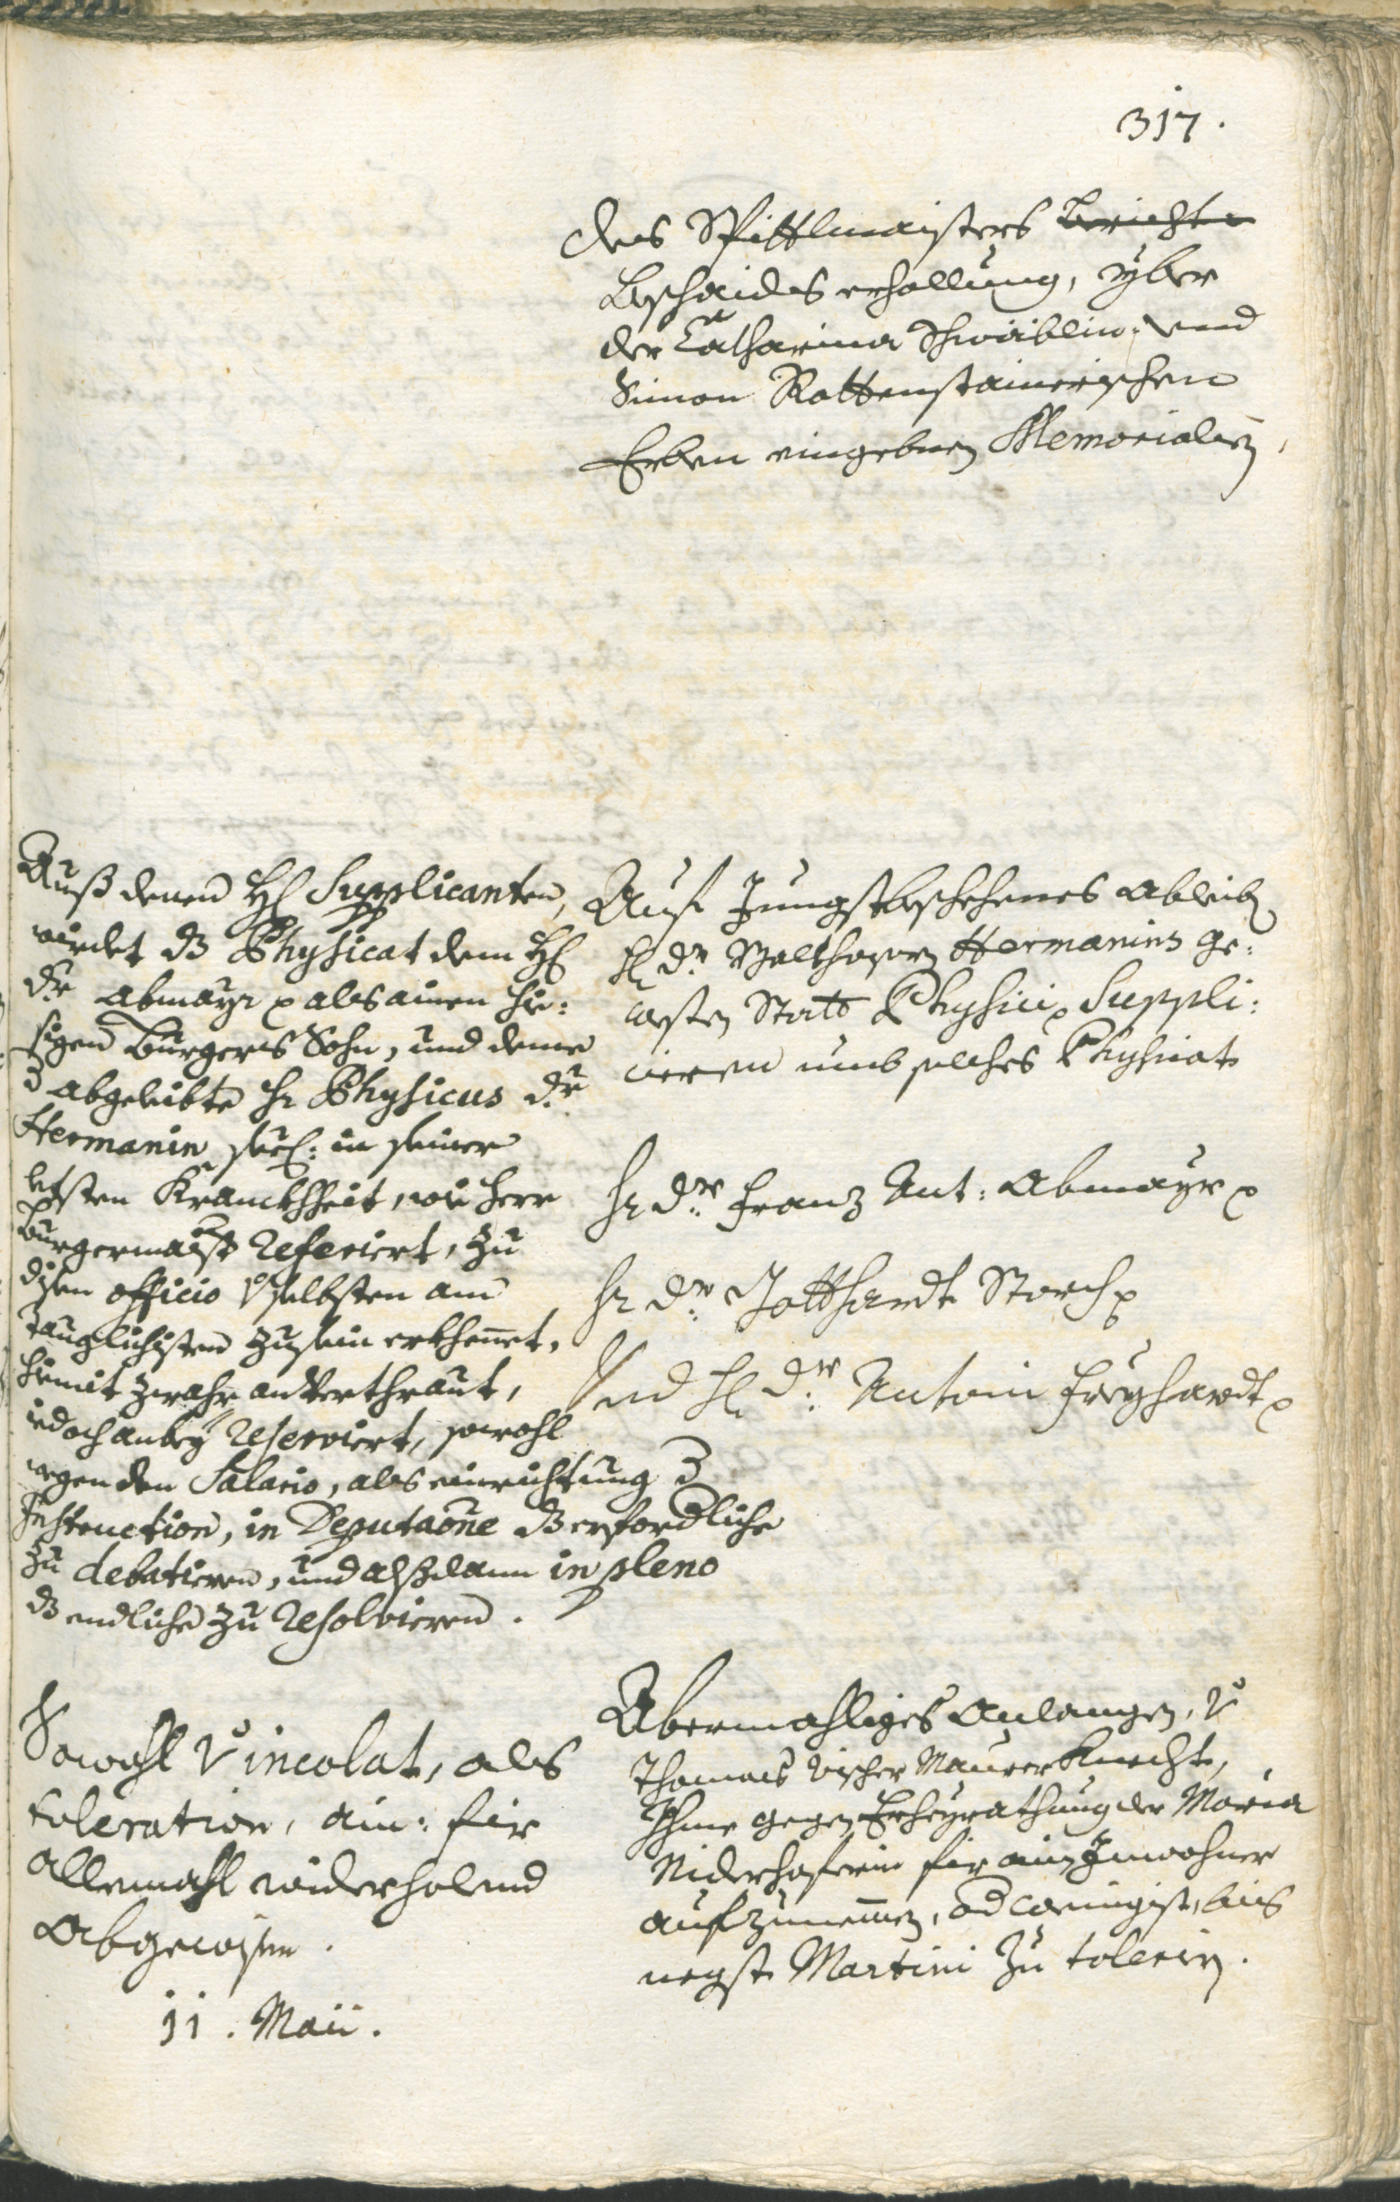 317.
Des Spittlmaisters Berichts
Beschaidts erhollung, yber
der Catharina Schwäblin: vnd
Simon Rottenstainerischen
Erben eingebnen Memorialien,
Auß denen H Supplicanten,
wirdet dz Physicat dem H
Dr. Abmayr als ainen hie:
sigen Burgers Sohn, und deme
d abgeleibte Hr Physicus Dr.
Hermanin seel: in seiner
letsten Kranckhheit, wie Herr
Burgermaistr Referiert, zu
disen officio selbsten am
tauglichisten zusein erkhennet,
hiemit zwahr anVerthraut,
iedoch anbey Reserviert, sowohl
wegen den Salario, als einrichtung d
Instruction, in Deputaone dz erfordliche
zu debatieren, und alßdann in pleno
dz endliche zu Resolvieren.
Auf Jungstbeschehenes Ableib
H Dr. Balthasarn Hermanins ge:
westen Statt Physici, Suppli:
cieren umb solches Physicat
Hr Dr. Franz Ant: Abmayr
Hr Dr. Gotthardt Storch
Und H Dr. Antoni Freyhardt
Sowohl Vincolat, als
toleration, ain: fir
allemahl widerholend
Abgewisen.
11. Maii.
Abermahliges Anlangen, V
Thomas Vischer Maurer Knecht,
Ihme gegen Erheyrathung der Maria
Niderhoferin fir ain Inwohner
aufzunemmen, od wenigist, bis
negst Martini zu tolerirn.